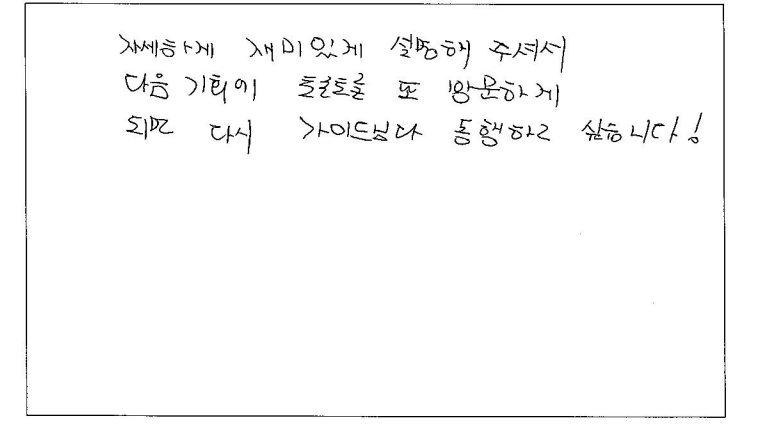 자세하게 재미있게 설명해 주셔서
다음 기회에 또 방문하게
되면 다시 가이드님과 동행하고 싶습니다!